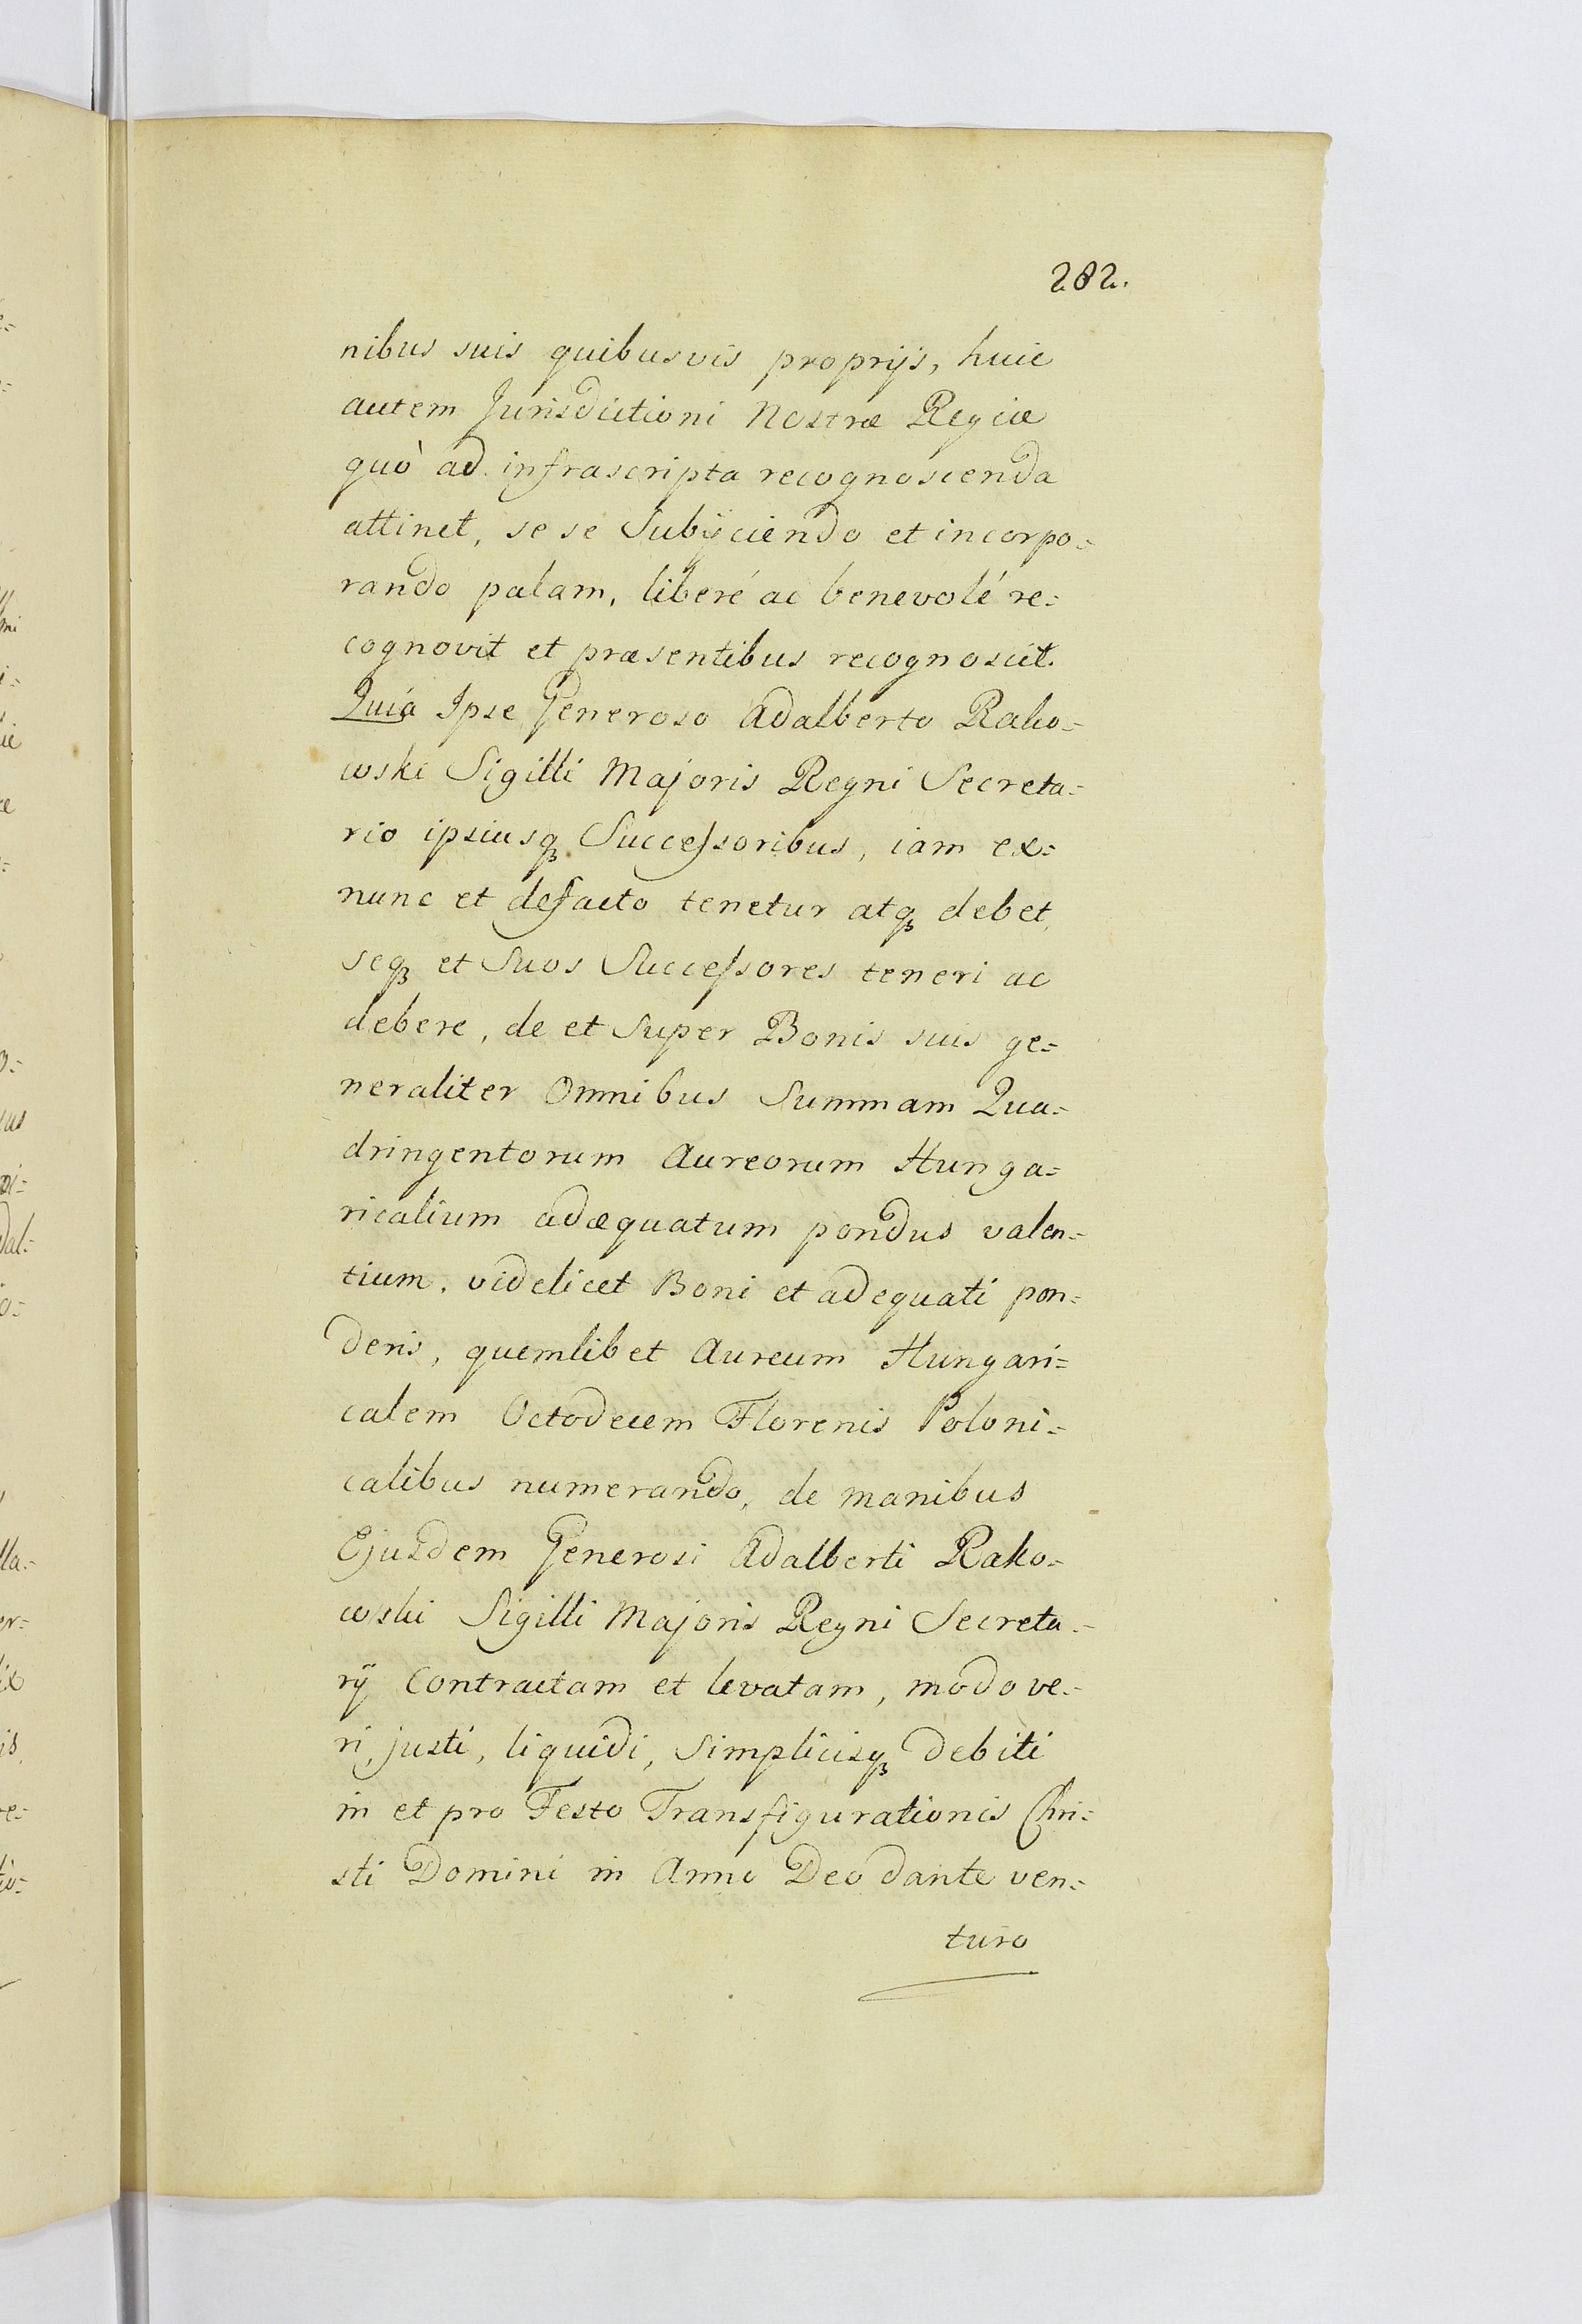 282.
nibus suis quibusvis proprijs, huic
autem Jurisdictioni Nostræ Regiæ
quò ad infrascripta recognoscenda
attinet, se se Subijciendo et incorpo=
rando palam, liberé ac benevolé re=
cognovit et præsentibus recognoscit.
Quia Ipse Generoso Adalberto Rako=
wski Sigilli Majoris Regni Secreta=
rio ipsiusqꝫ Successoribus, iam ex=
nunc et defacto tenetur atqꝫ debet,
seqꝫ et Suos Successores teneri ac
debere, de et Super Bonis suis ge=
neraliter Omnibus Summam Qua=
dringentorum Aureorum Hunga=
ricalium adæquatum pondus valen=
tium, videlicet Boni et adequati pon=
deris, quemlibet Aureum Hungari=
calem Octodecem Florenis Poloni=
calibus numerando, de manibus
Ejusdem Generosi Adalberti Rako=
wski Sigilli Majoris Regni Secreta=
rij Contractam et levatam, modo ve=
ri, justi, liquidi, Simplicisqꝫ debiti
in et pro Festo Transfigurationis Chri=
sti Domini in Anno Deo dante ven=
turo